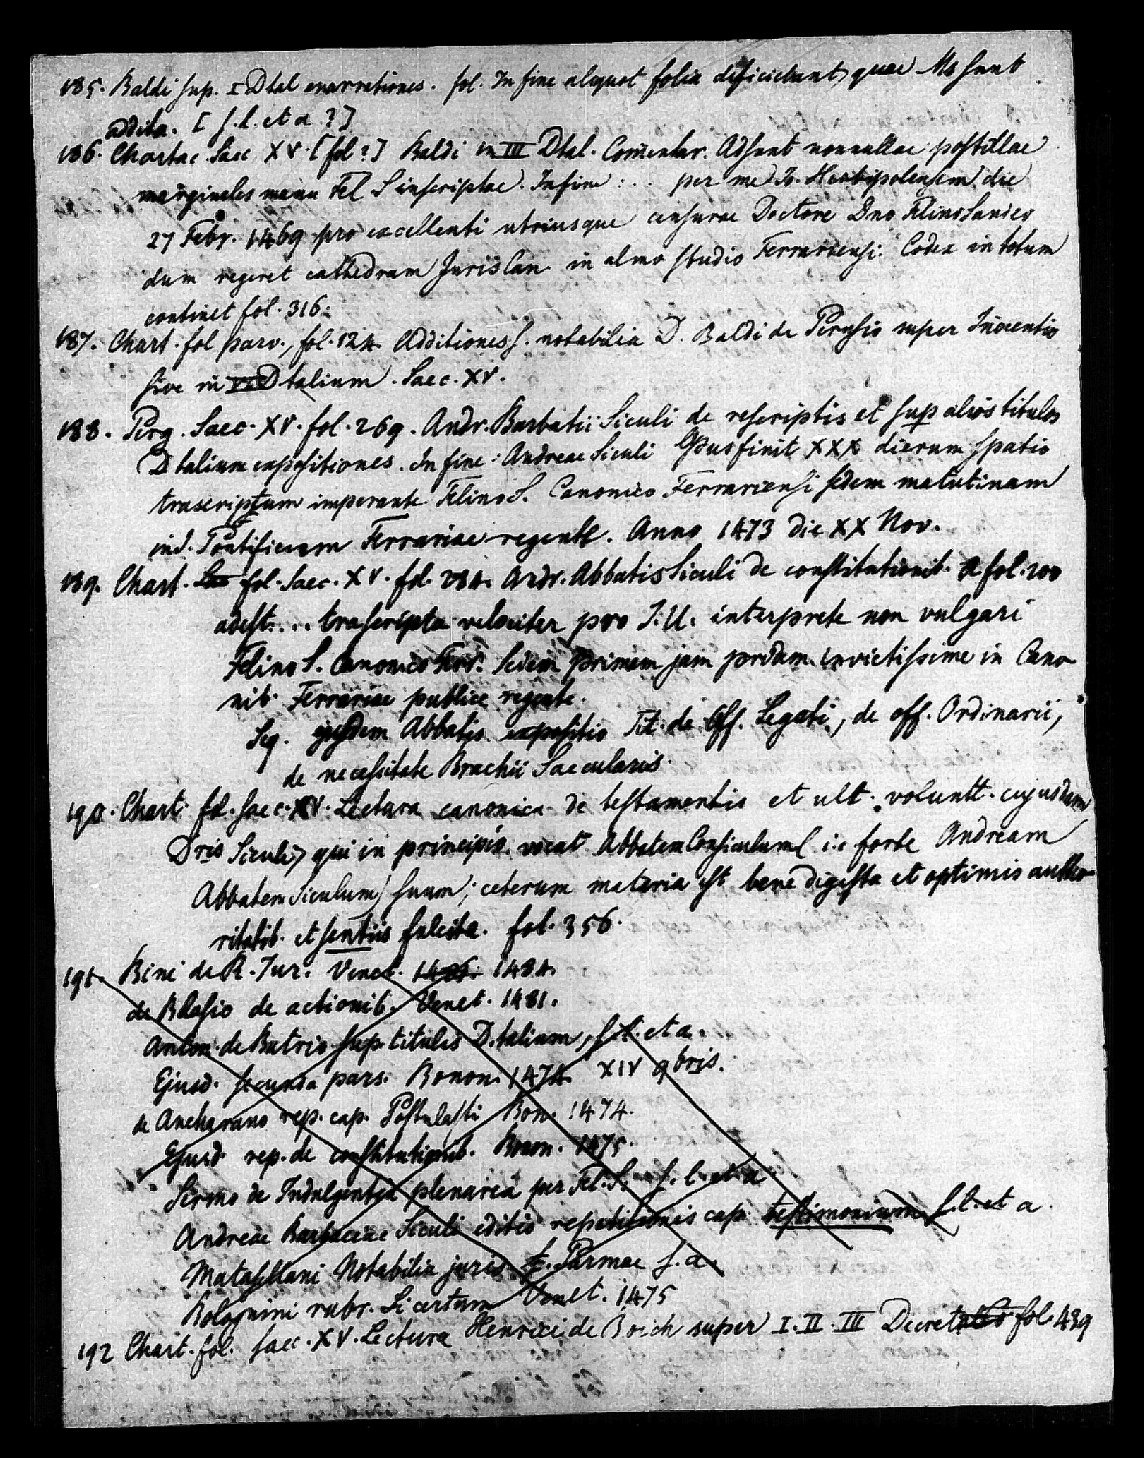 185. Baldi sup. I Dtal enarrationes. fol. In fine aliquot folia deficiebant, quae Ms sunt
addita. [s. l. et a ?]
186. Chartac. Saec XV. [fol ?] Baldi in III Dtal. Comentar. Adsunt nonnullae postillae
marginales manu Fel. S inscriptae. In fine: . . per me Jo. die
27 Febr. 1469 pro excellenti utriusque censurae Doctore Dno Felino Sandeo
dum regeret cathedram Juris Can in almo studio Ferrariensi. Codex in totum
continet fol. 316.
187. Chart. fol parv., fol. 124. Additiones s. notabilia D. Baldi de Perusio super Inocentio
sive in V Dtalium. Saec. XV.
188. Perg. Saec. XV. fol. 269. Andr. Barbatii Siculi de rescriptis et sup alios titulos
Dtalium expositiones. In fine: Andreae Siculi Opus finit XXX dierum spatio
transcriptum imperante Felino S. Canonico Ferrariensi sedem matutinam
ind. Pontificum Ferrariae regente. Anno 1473 die XX Nov.
189. Chart. fol. Saec. XV. fol. 284. Andr. Abbatis Siculi de constitutionib. A fol. 200
adest.... trascripta velociter pro I. U. interprete non vulgari
Felino S. Canonico Ferr. Sedem primam jam pridem invictissime in Cano-
nib. Ferrariae publice regente.
Seq. ejusdem Abbatis expositio Tit. de Off. Legati, de off. Ordinarii,
de necessitate Brachii Saecularis.
190. Chart. fol. Saec. XV. Lectura canonica de testamentis et ult. voluntt. cujusdam
Dris Siculi, qui in principio vocat Abbatem Consiculum (i. e forte Andream
Abbatem Siculum) suum; ceterum materia est bene digesta et optimis autho-
ritatib. et sentiis fulcita. fol. 356.
191. Bini de R. Jur. Venet. 1484.
de Blasio de actionib. Venet. 1481.
Anton. de Butrio sup. titulis D.talium, s. l. et a.
Ejusd. secunda pars. Bonon. 1474. XIV 9bris.
de Ancharano rep. cap. Postulasti Bon. 1474.
Ejusd. rep. de constitutionib. Bonon. 1475.
Sermo de Indulgentia plenaria per Fel. S. s. l. et a
Andreae Barbaciae Siculi editio repetitionis cap. testimonium s. l. et a.
Mataselani Notabilia juris. Parmae s. a.
Bolognini rubr. Si certum Venet. 1475
192 Chart. fol. saec. XV. Lectura Henrici de Boich super I. II. III Decret fol. 439